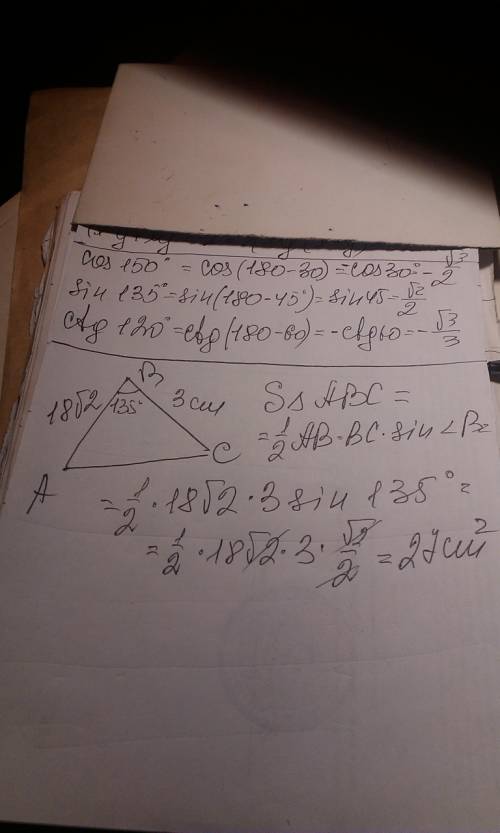 cos 150° = cos(180-30) = cos30° = -√3/2
sin 135° = sin(180-45°) = sin45 = √2/2
ctg 120° = ctg(180-60) = -ctg60 = -√3/3
B
18√2
135°
3 см
S△ABC =
= 1/2 AB·BC·sin∠B=
C
A
= 1/2 · 18√2 · 3 sin 135° =
= 1/2 · 18√2 · 3 · √2/2 = 27см²